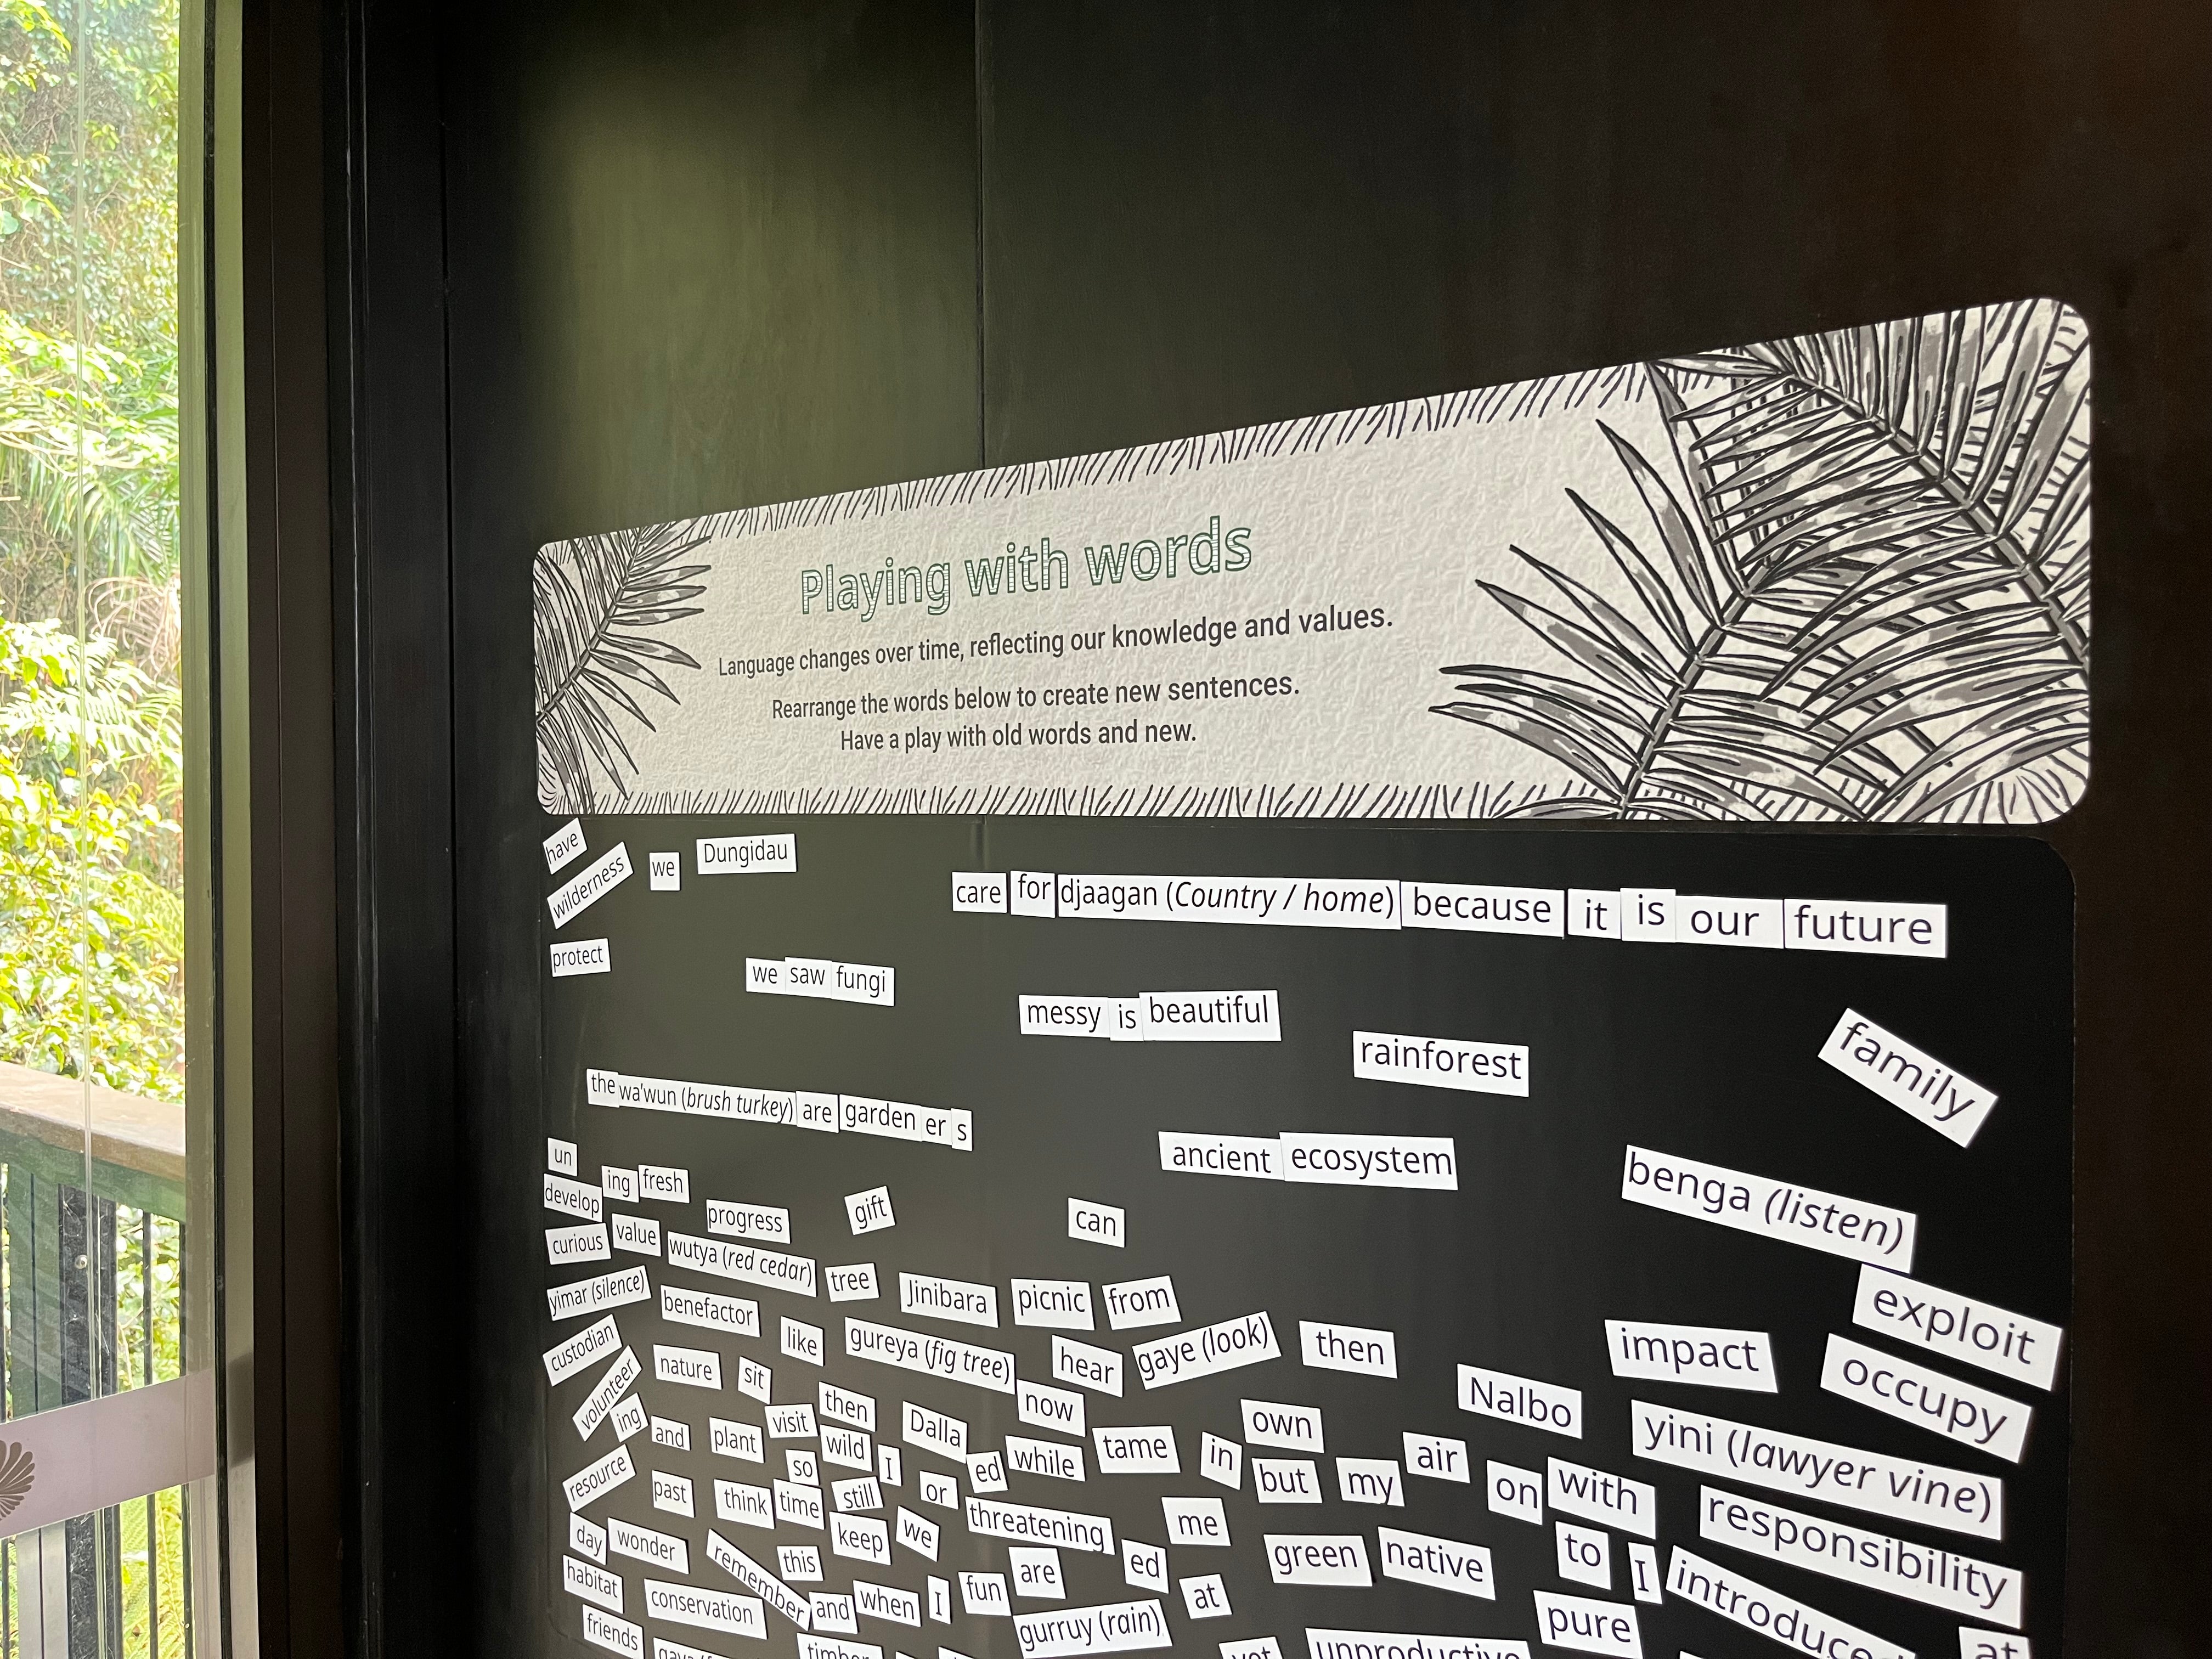 Playing with words
Language changes over time, reflecting our knowledge and values.
Rearrange the words below to create new sentences.
Have a play with old words and new.
have
wilderness
we
Dungidau
care for djaagan (Country / home) because it is our future
protect
we saw fungi
messy is beautiful
rainforest
family
the wa'wun (brush turkey) are garden er s
ancient ecosystem
benga (listen)
un
ing fresh
develop
progress
gift
can
curious
value
wutya (red cedar)
tree
Jinibara
picnic
from
exploit
yimar (silence)
benefactor
like
gureya (fig tree)
hear
gaye (look)
then
impact
occupy
custodian
nature
sit
then
now
Nalbo
volunteer
ing
and
plant
visit
wild
I
Dalla
ed
while
tame
in
own
but
my
air
on
with
yini (lawyer vine)
resource
past
so
think
time
still
or
threatening
me
responsibility
day
wonder
remember
this
keep
we
are
ed
green
native
to
I
introduced
habitat
conservation
and
when
I
fun
gurruy (rain)
at
pure
at
friends
timber
yet
unproductive